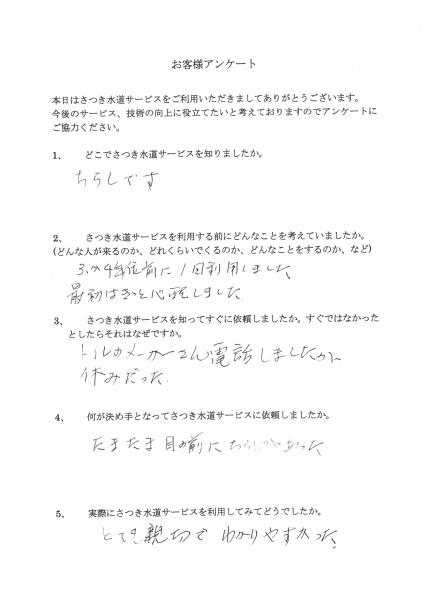 お客様アンケート
本日はさつき水道サービスをご利用いただきましてありがとうございます。
今後のサービス、技術の向上に役立てたいと考えておりますのでアンケートに
ご協力ください。
1、 どこでさつき水道サービスを知りましたか。
ちらしです
2、 さつき水道サービスを利用する前にどんなことを考えていましたか。
(どんな人が来るのか、どれくらいでくるのか、どんなことをするのか、など)
4年位前に1回利用しました
最初はきっと心配しました
3、 さつき水道サービスを知ってすぐに依頼しましたか。すぐではなかった
としたらそれはなぜですか。
メーカーさん電話しましたが
休みだった
4、 何が決め手となってさつき水道サービスに依頼しましたか。
たまたま目の前にちらしがあった
5、 実際にさつき水道サービスを利用してみてどうでしたか。
とても親切でわかりやすかった。